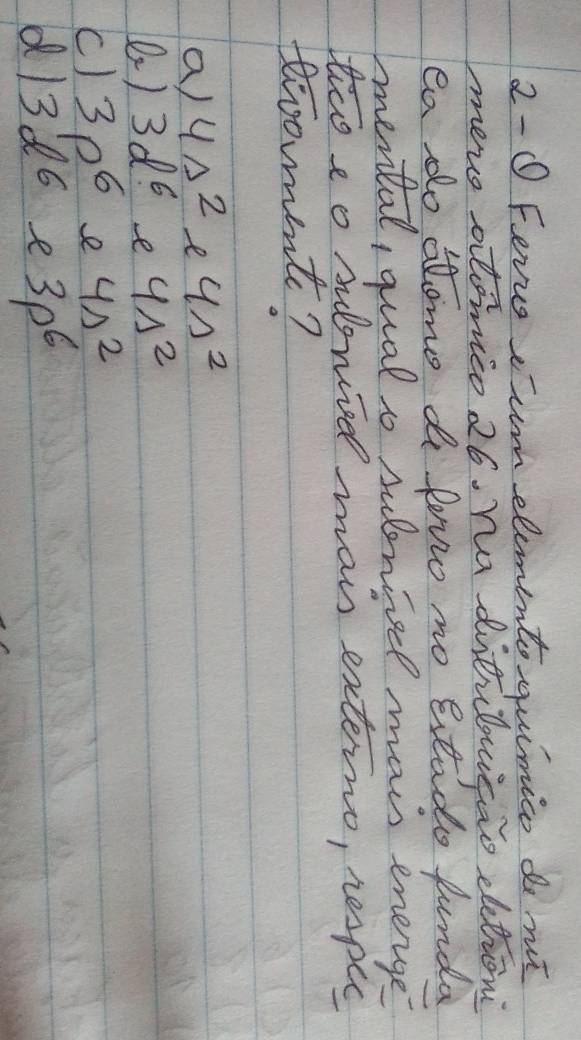 2- O Ferro é um elemento químico de nú
mero atômico 26. Na distribuição eletrôni
ca do átomo de ferro no Estado funda
mental, qual o subnível mais energé
tico e o subnível mais externo, respec
tivamente?
a) 4s² e 4s²
b) 3d⁶ e 4s²
c) 3p⁶ e 4s²
d) 3d⁶ e 3p⁶